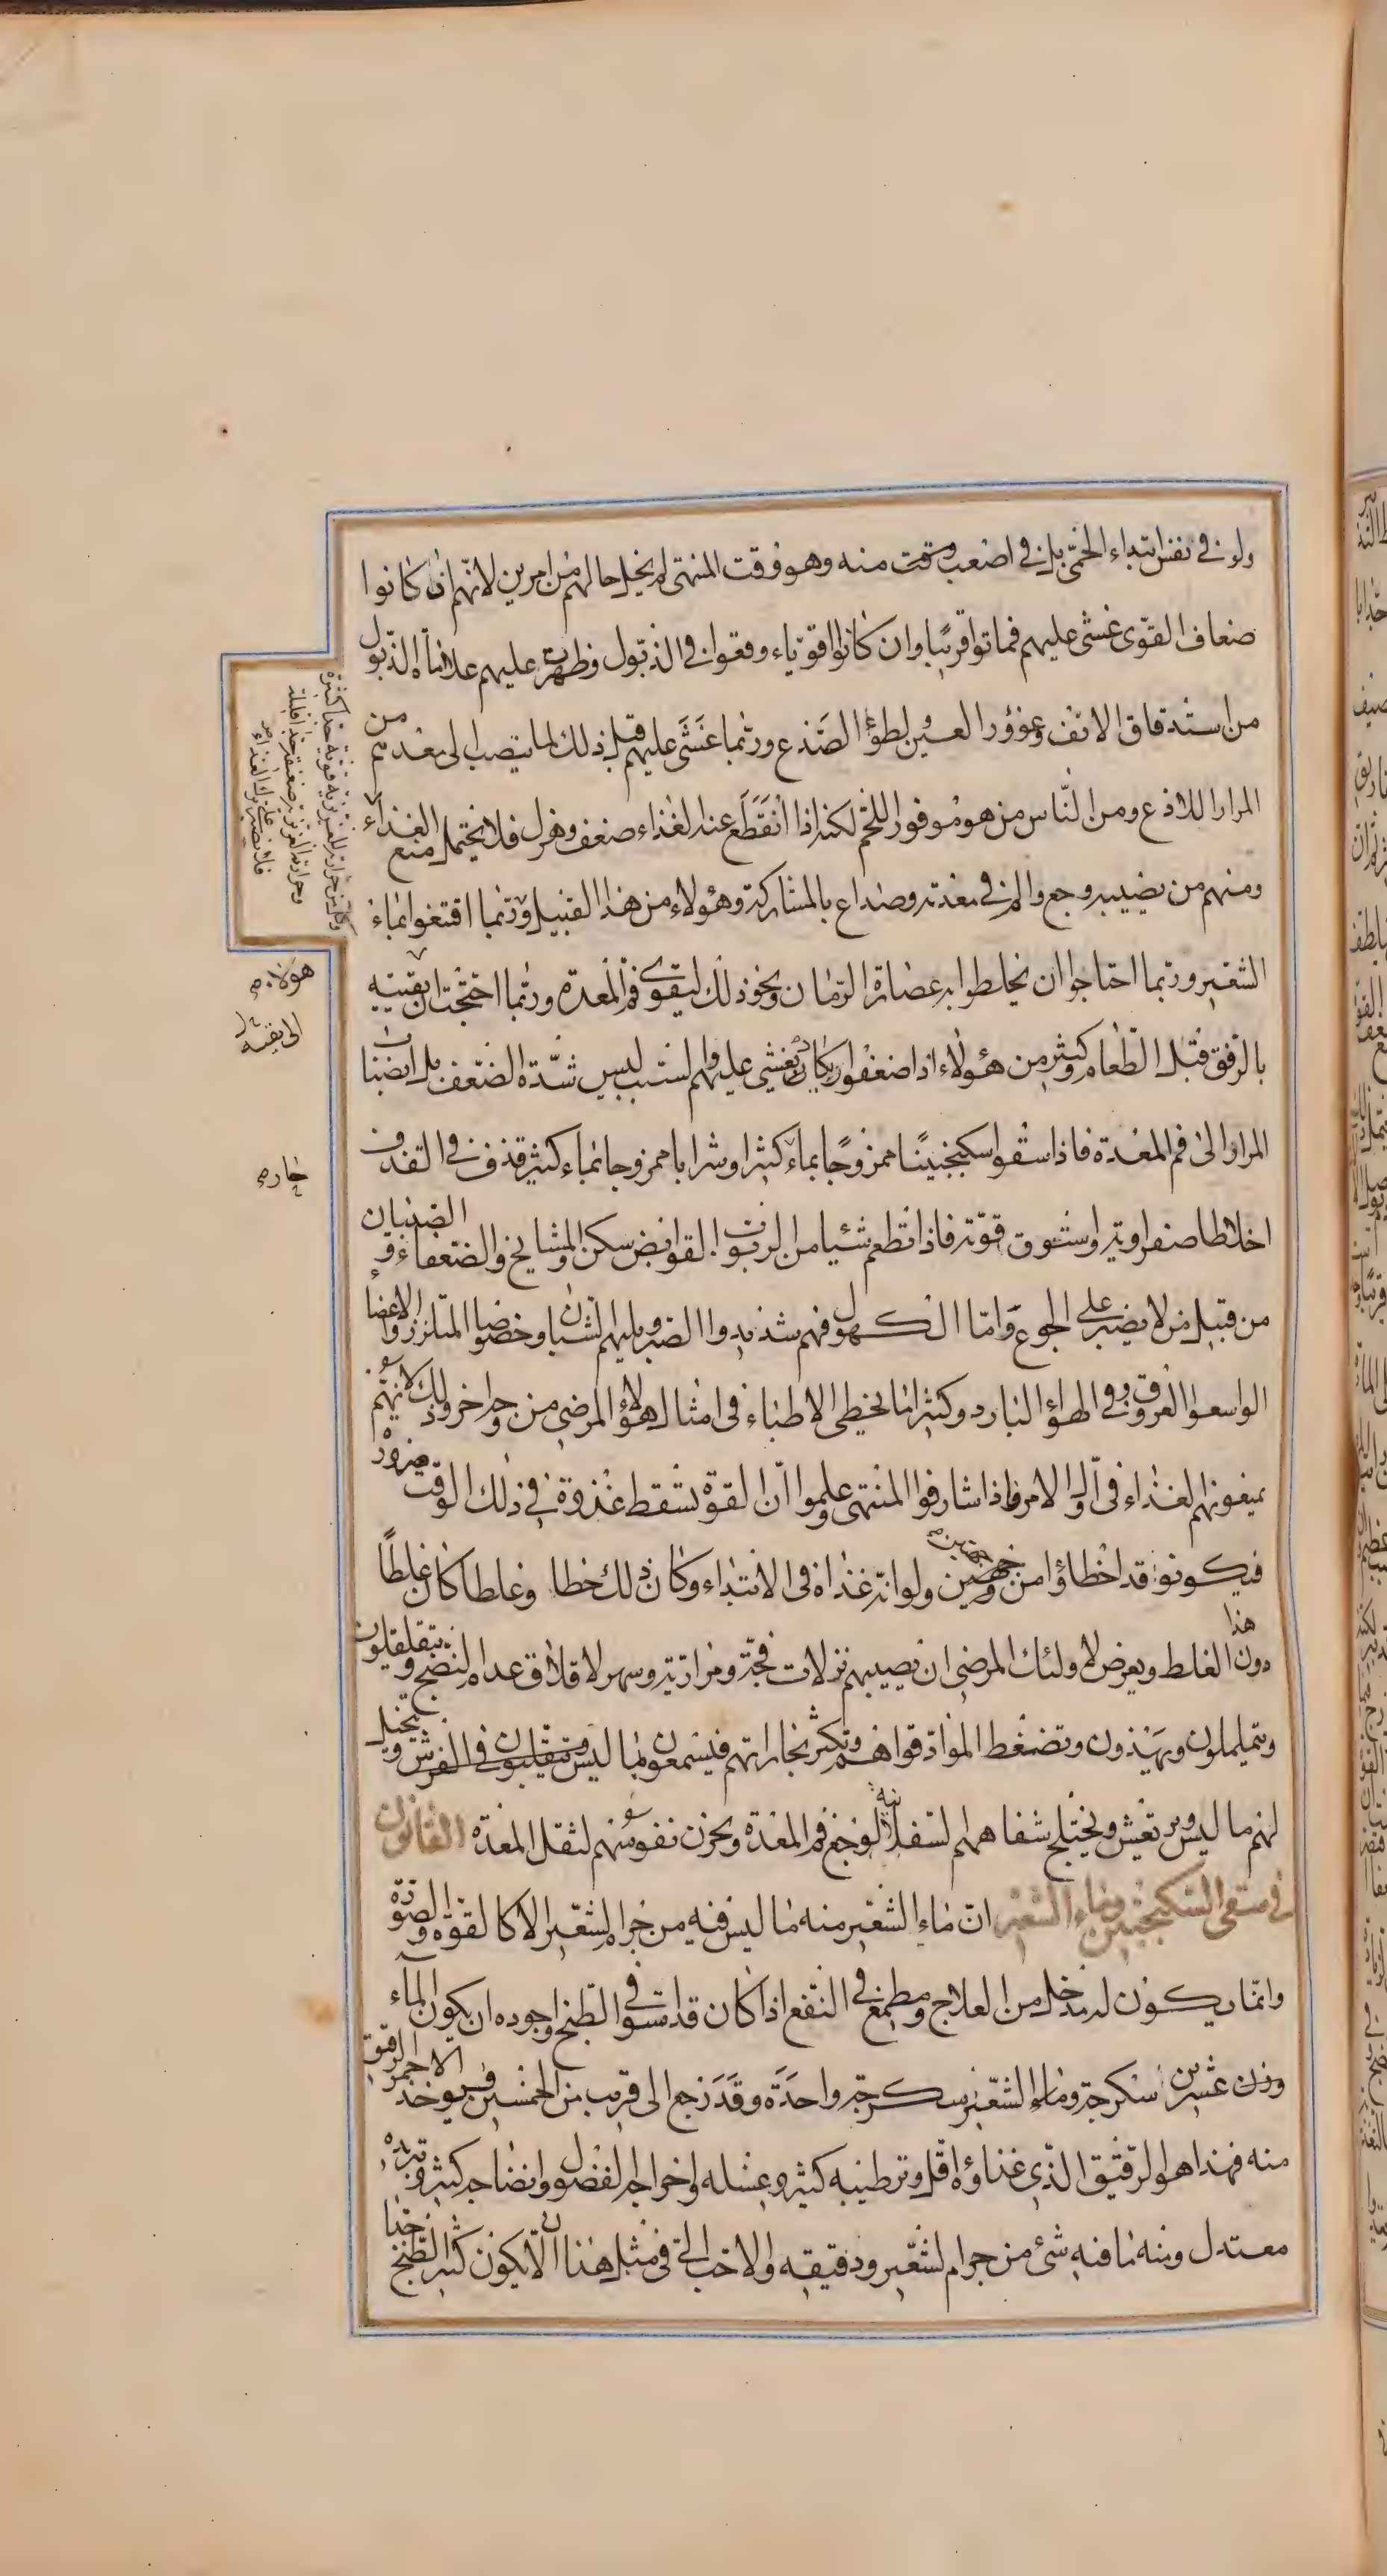 ولو في نفس ابتداء الحمّى بل في اصعب وقت منه وهو وقت المنتهى لم يخل حالهم من امرين لانهم ان كانوا
ضعاف القوّى غشى عليهم فماتوا قريبًا وان كانوا اقوياء وقعوا في الذبول وظهرت عليهم علامات الذبول
من استدقاق الانف وغؤور العين لطوء الصدغ وربّما غشى عليهم قبل ذلك لما ينصب الى معدتهم من
المرار اللاذع ومن النّاس من هو موفور اللحم لكنه اذا انقطع عنه الغذاء ضعف وهزل فلا يحتمل منع الغذاء
ومنهم من يصيبه وجع والم في معدته وصداع بالمشاركة وهؤلاء من هذا القبيل وربّما اقتنعوا بماء
الشعير وربما احتاجوا ان يخلطوا به عصارة الرمان ونحو ذلك ليقوى فم المعدة وربّما احتجت ان تقيئه
بالرفق قبل الطّعام وكثير من هؤلاء اذا ضعفوا وكاد يغشى عليهم السبب ليس شدّة الضعف بل انصباب
المرار الى فم المعدة فاذا سقوا سكنجبينًا ممزوجًا بماء كثير او شرابا ممزوجا بماء كثير قذف في القذف
اخلاطا صفراوية واستوى قوّته فاذا تطعم شيئا من الربوب القوابض سكن والمشايخ والضعفاء و الصبيان
من قبيل من لا يصبر على الجوع وامّا الكهول فهم شديدوا الصبر ويليهم الشبان وخصوصا المتلززوا الاعضا
الواسعوا العروق وفي الهواء البارد وكثيرا ما يخطى الاطباء في امثال هؤلاء المرضى من وجه اخر وذلك لانهم
يمنعونهم الغذاء في اول الامر فاذا شارفوا المنتهى وعلموا انّ القوة تسقط غذوه في ذلك الوقت ضرورة
فيكونو قد اخطاؤا من وجهين ولو انّه غذاه في الابتداء وكان ذلك خطا وغلطا كان غلطًا
دون هذا الغلط ويعرض لاولئك المرضى ان يصيبهم نزلات فجة ومرارية وسهر لاقلاق عدم النضج ويتقلقلون
ويتململون ويهذون وتضغط المواد قواهم وتكثر بخاراتهم فيسمعون ما ليس ويتقلبون في الفرش ويتخيل
لهم ما ليس ويرتعش ويختلج شفاههم السفلانية لوجع فم المعدة ويحزن نفوسهم لثقل المعدة القانون
في سقى السكنجبين وماء الشعير انّ ماء الشعير منه ما ليس فيه من جرم الشعير الا كالقوة والصورة
وانما يكون له مدخل من العلاج ومطمع في النفع اذا كان قد استوى في الطبخ واجوده ان يكون الماء
وزن عشرين سكرجة وماء الشعير سكرجة واحدة وقد رجع الى قريب من الخمسين فيوخذ الاحمر الرقيق
منه فهذا هو الرقيق الذي غذاؤه اقل وترطيبه كثير وغسله واخراجه الفضول وانضاجه كثير وتبريده
معتدل ومنه ما فيه شئ من جرم الشعير ودقيقه والاحب الي في مثل هذا ان لا يكون كثير الطبخ جدا
وكان من حرارته الغريزية قوية جدا كثيرة
وحرارته الغريزية ضعيفة جدا قليلة
فلا يصبر على ترك الغذاء
هولاء صح
الى تقيته
حار صح